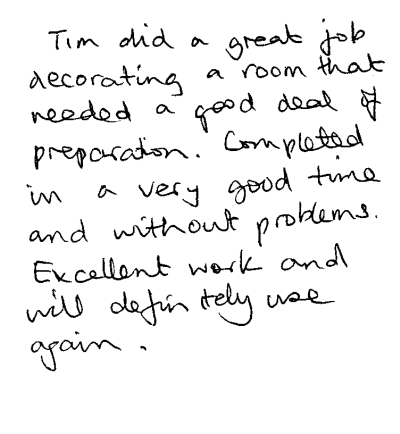 Tim did a great job
decorating a room that
needed a good deal of
preparation. Completed
in a very good time
and without problems.
Excellent work and
will definitely use
again.